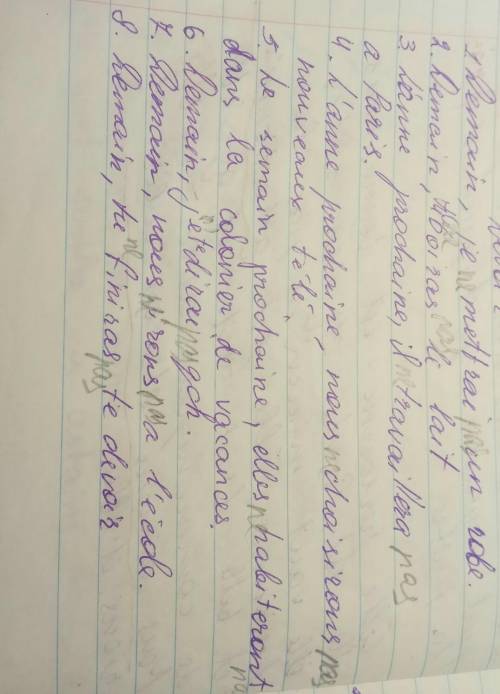 1 Demain, je ne mettrai pas un robe.
2. Demain, boiras pas le lait
3 L'anne prochaine, il ne travaillera pas
a Paris.
4. L'anne prochaine, nous ne choisirons pas
nouveaux télé
5. Le semain prochaine, elles ne habiteront pas
dans la colonier de vacances.
6. Demain, j' étudirai pas
7. Demain, nous n'irons pas a l'école.
8. Demain, ne finiras pas te devoir